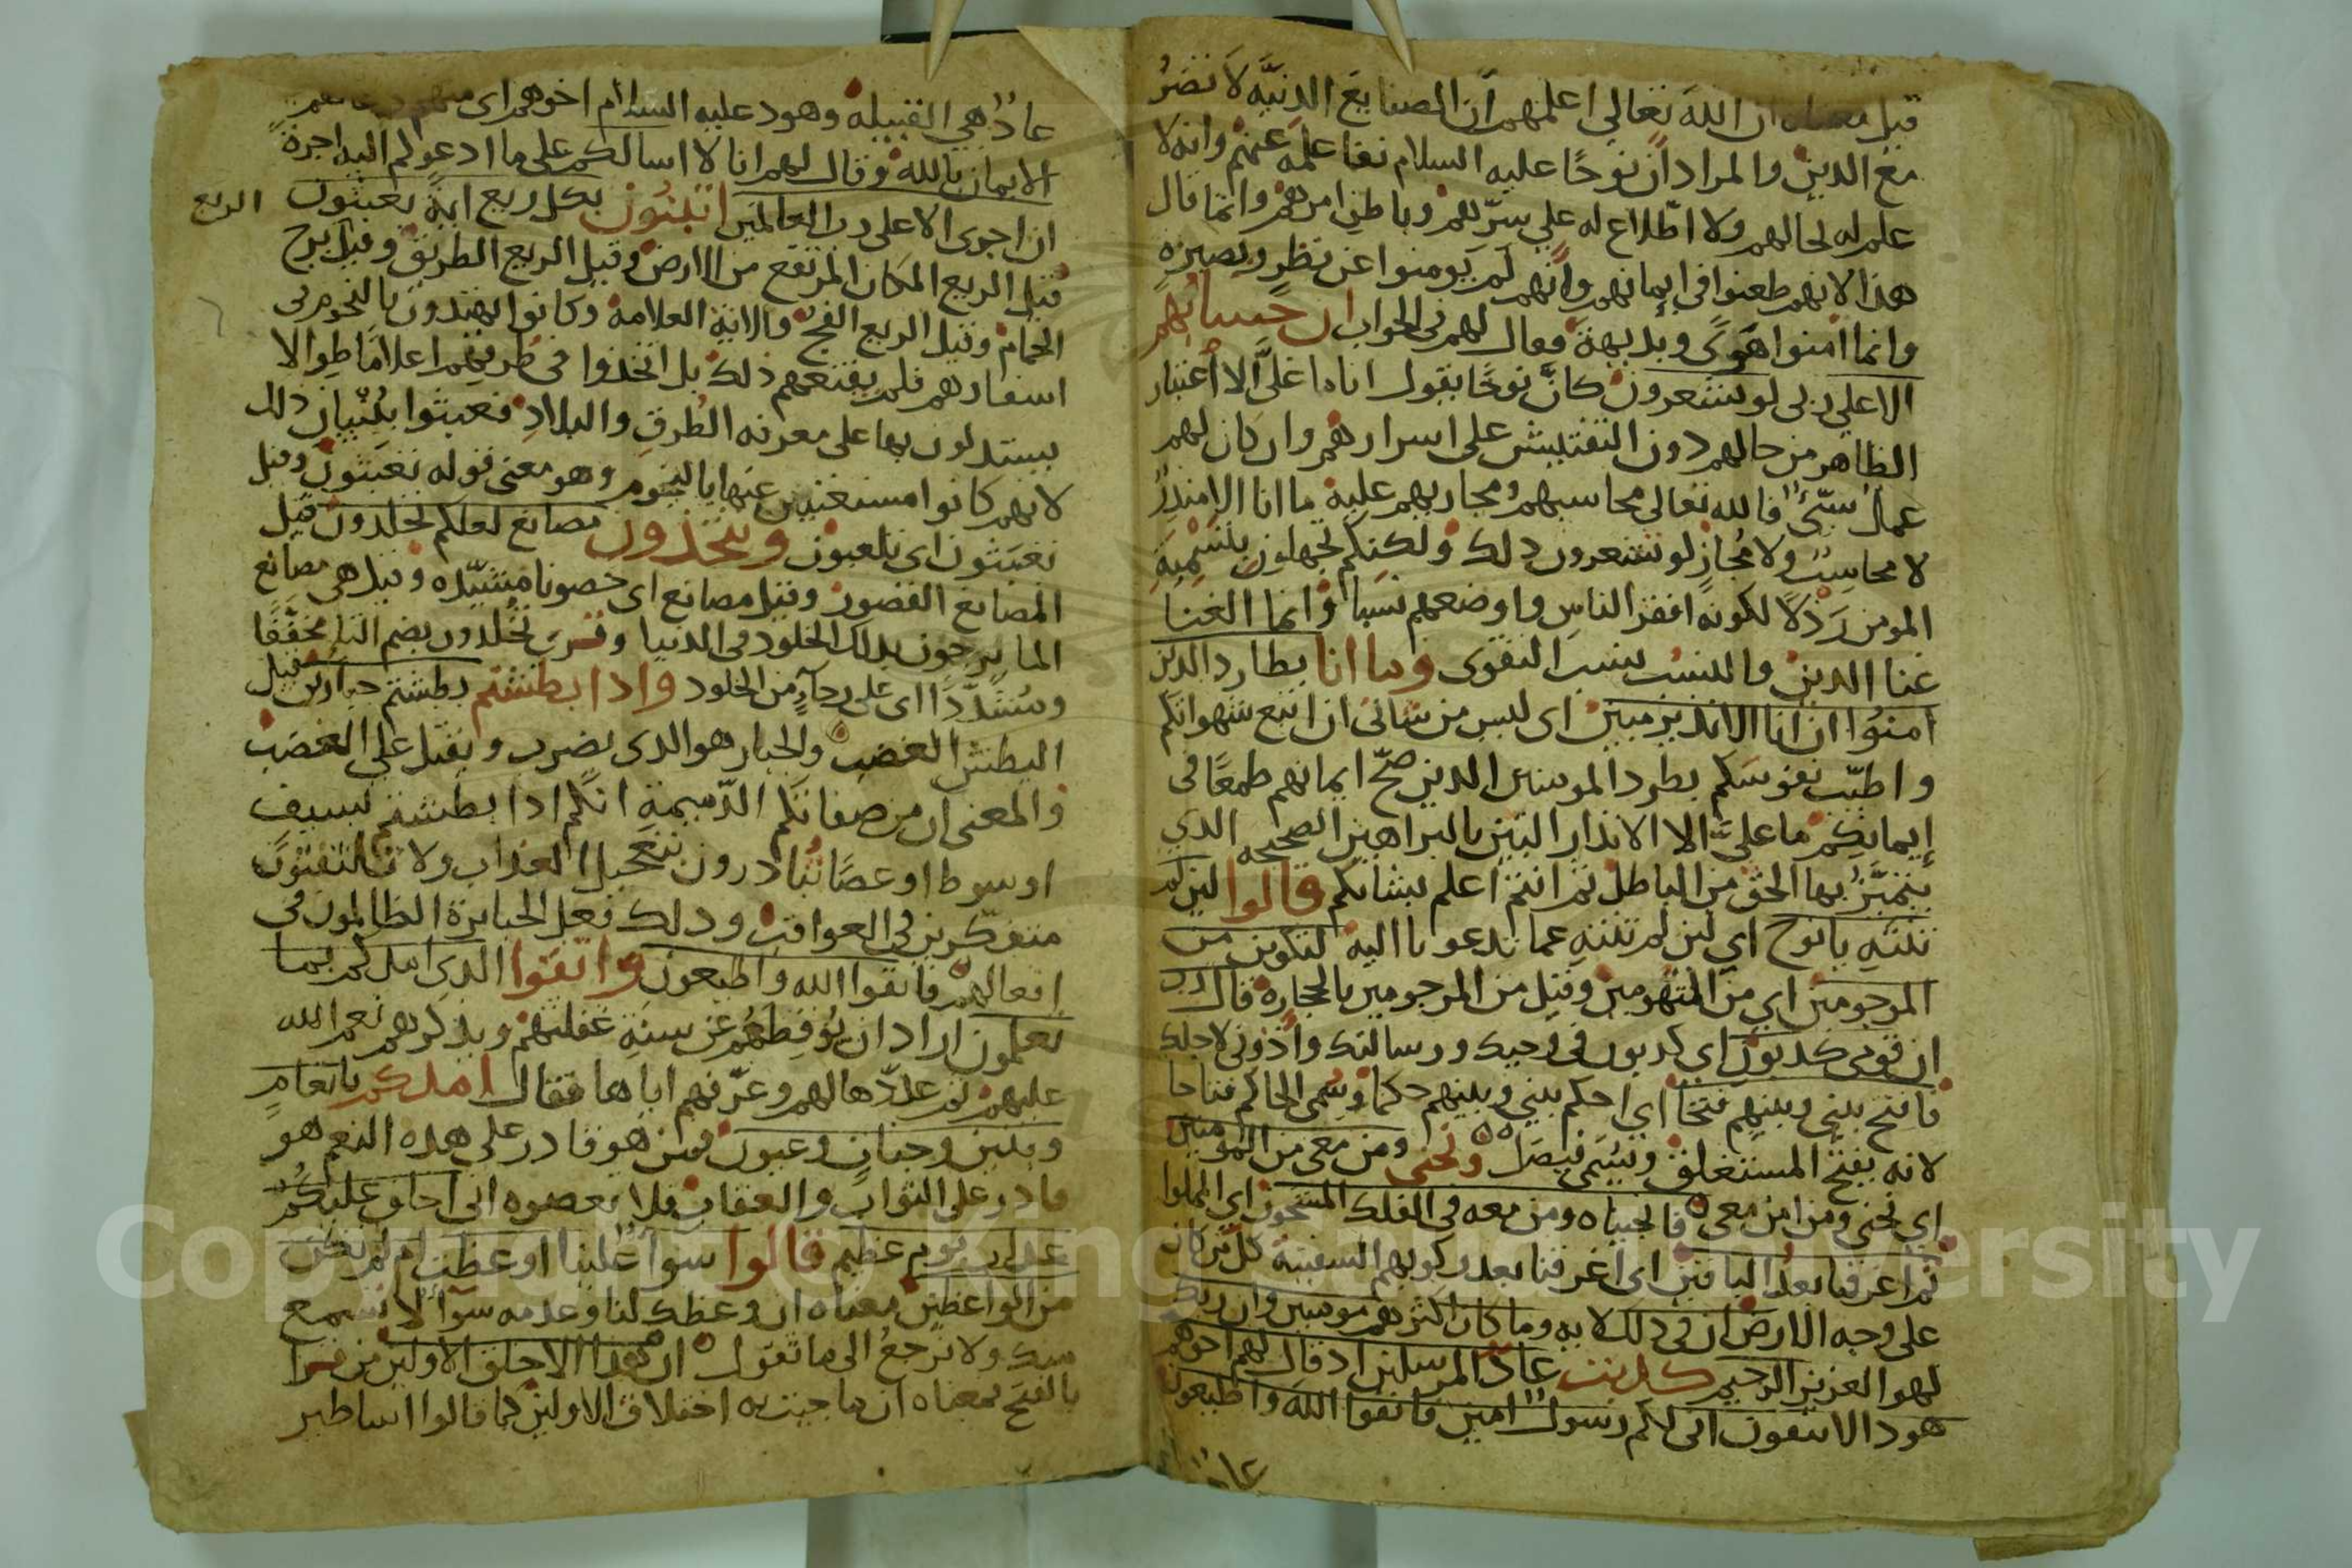 قيل معناه ان الله تعالى اعلمهم ان الصنايع الدنيّه لا تضرُّ
مع الدين والمراد ان نوحًا عليه السلام نفا علمه عنهم وانه لا
علم له لحالهم ولا اطّلاع له على سرّهم وباطن امرهم وانما قال
هذا لانهم طعنوا في ايمانهم وانهم لم يومنوا عن نظرٍ وبصيرةٍ
وانما امنوا هوًى وبديهة فقال لهم في الجواب ان حسابهم
الا على ربى لو تشعرون كانّ نوحًا يقول انا ما عليّ الا اعتبار
الظاهر من حالهم دون التفتيش على اسرارهم وان كان لهم
عملٌ سيّئٌ فالله تعالى محاسبهم ومجازيهم عليه ما انا الا منذرٌ
لا محاسِبٌ ولا مُجازٍ لو تشعرون ذلك ولكنكم تجهلون بتسميةِ
المومن رَذلاً لكونه افقر الناس واوضعهم نسبا وانما الغنا
غنا الدين والنسب نسب التقوى وما انا بطارد الذين
امنوا ان انا الا نذير مبين اى ليس من شانى ان اتبع شهواتكم
واطيّب نفوسكم بطرد المومنين الذين صحّ ايمانهم طمعًا فى
إيمانكم ما عليّ الا الانذار البيّن بالبراهين الصحيحه الذي
يتميّز بها الحق من الباطل ثم انتم اعلم بشانكم قالوا لين لم
تنتهِ يا نوح اي لين لم تنتهِ عما تدعونا اليه لتكونن من
المرجومين اي من المتهومين وقيل من المرجومين بالحجارة قال رب
ان قومى كذبون اي كذبون فى وحيك ورسالتك وآذوني لاجلك
فافتح بينى وبينهم فتحًا اي احكم بيني وبينهم حكمًا وسُمى الحاكم فتاحا
لانه يفتح المستغلق ويسمى فيصل ونجنى ومن معى من المومنين
اي نجنى ومن امن معى فانجيناه ومن معه فى الفلك المشحون اي المملوا
ثم اغرقنا بعدُ الباقين اى اغرقنا بعد ركوبهم السفينة كل من كان
على وجه الارض ان فى ذلك لايه وما كان اكثرهم مومنين وان ربك
لهو العزيز الرحيم كذبت عادٌ المرسلين اذ قال لهم اخوهم
هود الا تتقون انى لكم رسولٌ امين فاتقوا الله واطيعون
عادٌ هي القبيله وهود عليه السلام اخوهم اى منهم
الايمان بالله وقال لهم انا لا اسالكم على ما ادعوكم اليه اجرةً
ان اجرى الا على رب العالمين اتبنون بكل ريع ايةً تعبثون
الريع
قيل الريع المكان المرتفع من الارض وقيل الريع الطريق وقيل برج
الحمام وقيل الريع الفجّ والاية العلامة وكانوا يهتدون بالنجوم فى
اسفارهم فلم يقنعهم ذلك بل اتخذوا فى طريقهم اعلامًا طوالا
يستدلون بها على معرفه الطُرقِ والبلادِ فعبثوا ببُنيان ذلك
لانهم كانوا مستغنين عنها بالنجوم وهو معنى قوله تعبثون وقيل
تعبثون اى تلعبون وتتخذون مصانع لعلكم تخلدون قيل
المصانع القصور وقيل مصانع اى حصونا مشيّده وقيل هى مصانع
الما يرجون بذلك الخلود فى الدنيا وقرى تُخْلدون بضم التا مخفّفًا
ومُشدّدًا اى على رجآءٍ من الخلود واذا بطشتم بطشتم جبارين قيل
البطش الغضب والجبار هو الذى يضرب ويقتل على الغضب
والمعنى ان من صفاتكم الذّميمةِ انّكم اذا بطشتم بسيف
او سوط او عصًا تُبادرون تعجيل العذاب ولا تلتفتون
متفكّرين فى العواقب وذلك فعل الجبابرة الظالمون فى
افعالهم فاتقوا الله واطيعون واتقوا الذى امدكم بما
تعلمون اراد ان يُوقِظهُم عن سِنةِ غفلتهم ويذكرهم نعم الله
عليهم ثم عدّها لهم وعرّفهم اياها فقال امدكم بانعامٍ
وبنين وجناتٍ وعيون فمن هو قادر على هذه النعم هو
قادر على الثواب والعقاب فلا تعصوه انى اخاف عليكم
عذاب يوم عظيم قالوا سوآٌ علينا اوعظت ام لم تكن
من الواعظين معناه ان وعظك لنا وعدمه سوآٌ لا نسمع
منك ولا نرجعُ الى ما تقول ان هذا الا خلق الاولين من قرا
بالفتح فمعناه ان ما جيت به اختلاق الاولين كما قالوا اساطير
Copyright © King Saud University